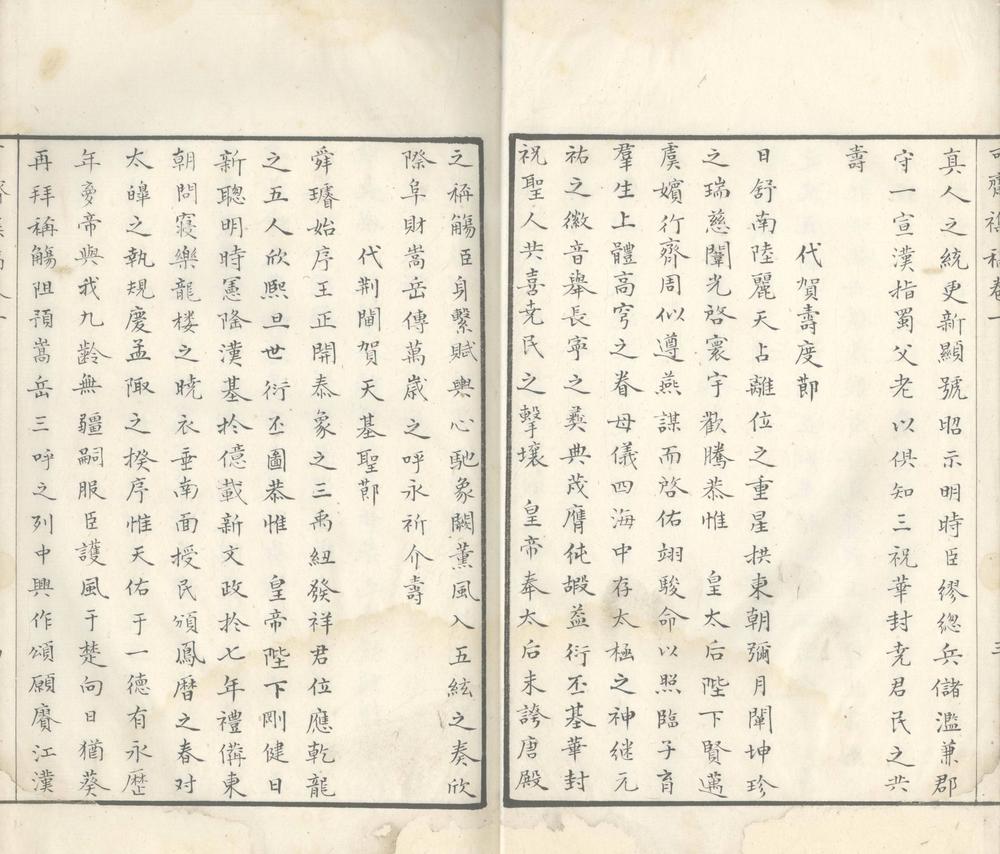 真人之統更新顯號昭示明時臣繆總兵儲濫兼郡
守一宣漢指蜀父老以俱知三祝華封堯君民之共
壽
代賀壽慶節
日舒南陸麗天占離位之重星拱東朝彌月闡坤珍
之瑞慈闈光啓寰宇歡騰恭惟 皇太后陛下賢邁
虞嬪行齊周姒遵燕謀而啓佑翊駿命以照臨子育
羣生上體高穹之眷母儀四海中存太極之神继元
祐之徽音舉長寧之彝典茂膺純嘏益衍丕基華封
祝聖人共喜堯民之擊壤 皇帝奉太后末誇唐殿
之稱觴臣身繫賦輿心馳象闕薰風入五絃之奏欣
際阜財嵩岳傳萬歲之呼永祈介壽
代荆閫賀天基聖節
舜璿始序王正開泰象之三禹紐發祥君位應乾龍
之五人欣熙旦世衍丕圖恭惟 皇帝陛下剛健日
新聰明時憲隆漢基扵億載新文政扵七年禮備東
朝問寢樂龍楼之曉衣垂南面授民頒鳳曆之春对
太皡之執規慶孟陬之揆序惟天佑于一德有永歴
年夣帝與我九齡無疆嗣服臣護風于楚向日猶葵
再拜稱觴阻預嵩岳三呼之列中興作頌願賡江漢